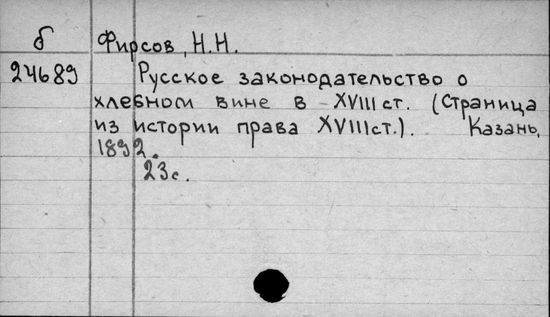 б Фирсов, Н.Н.
24689 Русское законодательство о
хлебном вине в XVIII ст. (Страница
из истории права XVIII ст.). Казань,
1892.
23 с.